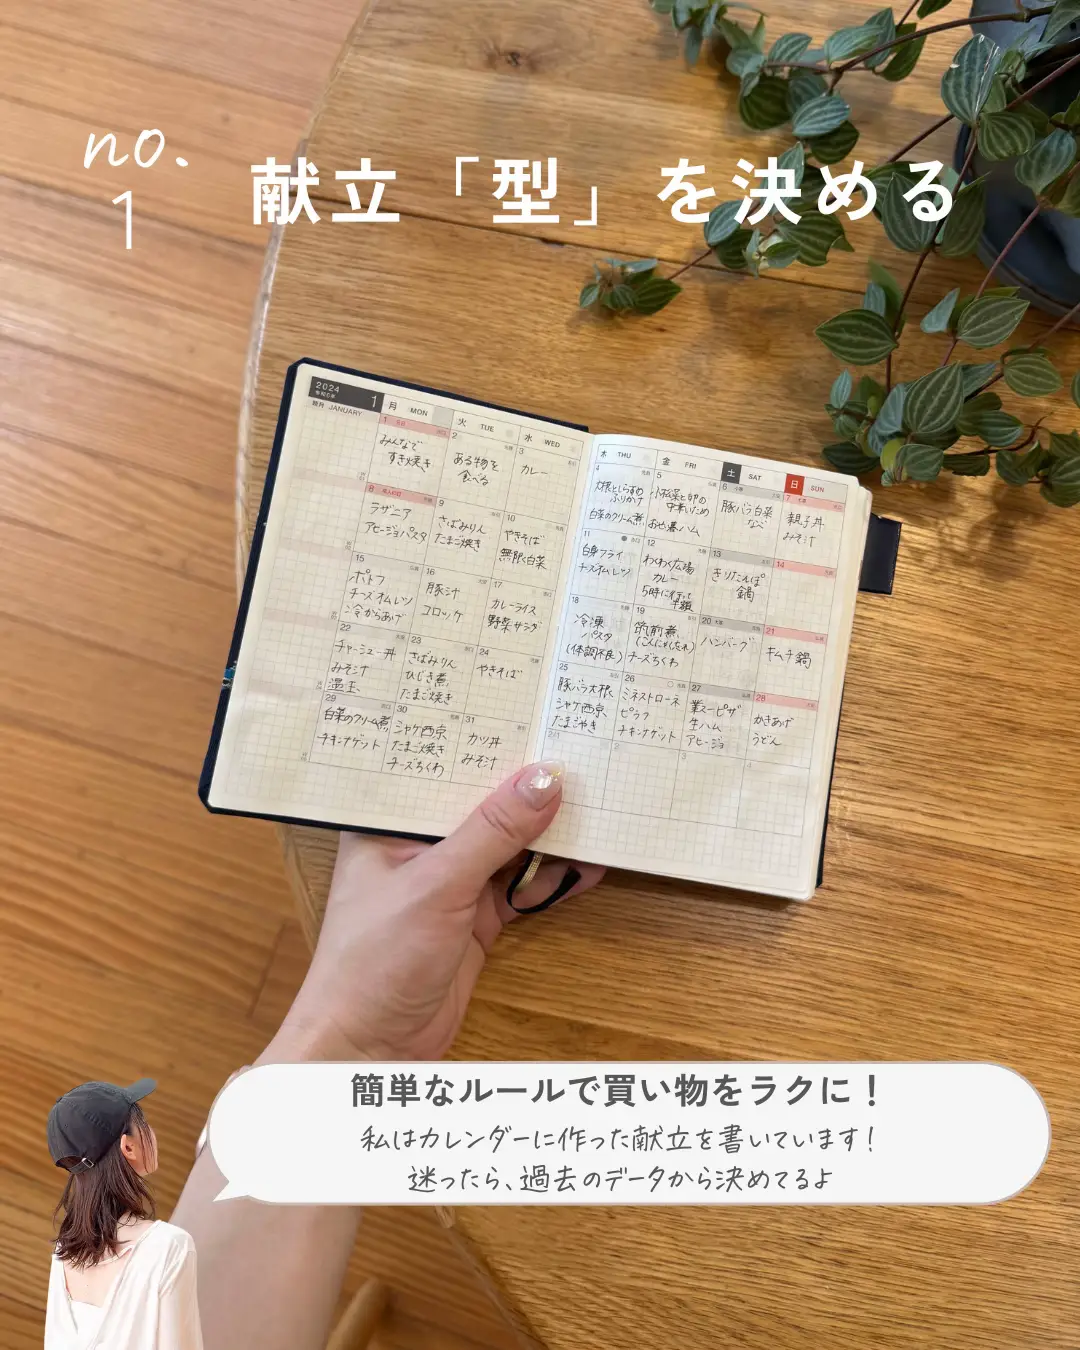 no.
1
献立「型」を決める
2024
1
JANUARY
月 MON
火 TUE
水 WED
木 THU
金 FRI
土 SAT
日 SUN
1
みんなで
すき焼き
2
ある物を
食べる
3
カレー
4
大根としらすの
ふりかけ
白菜のクリーム煮
5
小松菜と卵の
中華いため
お歳暮ハム
6
豚バラ白菜
なべ
7
親子丼
みそ汁
8
ラザニア
アヒージョパスタ
9
さばみりん
たまご焼き
10
やきそば
無限白菜
11
白身フライ
チーズオムレツ
12
わくわく広場
カレー
5時に行って
半額
13
きりたんぽ
鍋
14
15
ポトフ
チーズオムレツ
冷からあげ
16
豚汁
コロッケ
17
カレーライス
野菜サラダ
18
冷凍
パスタ
(体調不良)
19
筑前煮
(こんにゃく忘れ)
チーズちくわ
20
ハンバーグ
21
キムチ鍋
22
チャーシュー丼
みそ汁
温玉
23
さばみりん
ひじき煮
たまご焼き
24
やきそば
25
豚バラ大根
シャケ西京
たまごやき
26
ミネストローネ
ピラフ
チキンナゲット
27
業スーピザ
生ハム
アヒージョ
28
かきあげ
うどん
29
白菜のクリーム煮
チキンナゲット
30
シャケ西京
たまご焼き
チーズちくわ
31
カツ丼
みそ汁
2/1
2
3
4
簡単なルールで買い物をラクに！
私はカレンダーに作った献立を書いています！
迷ったら、過去のデータから決めてるよ